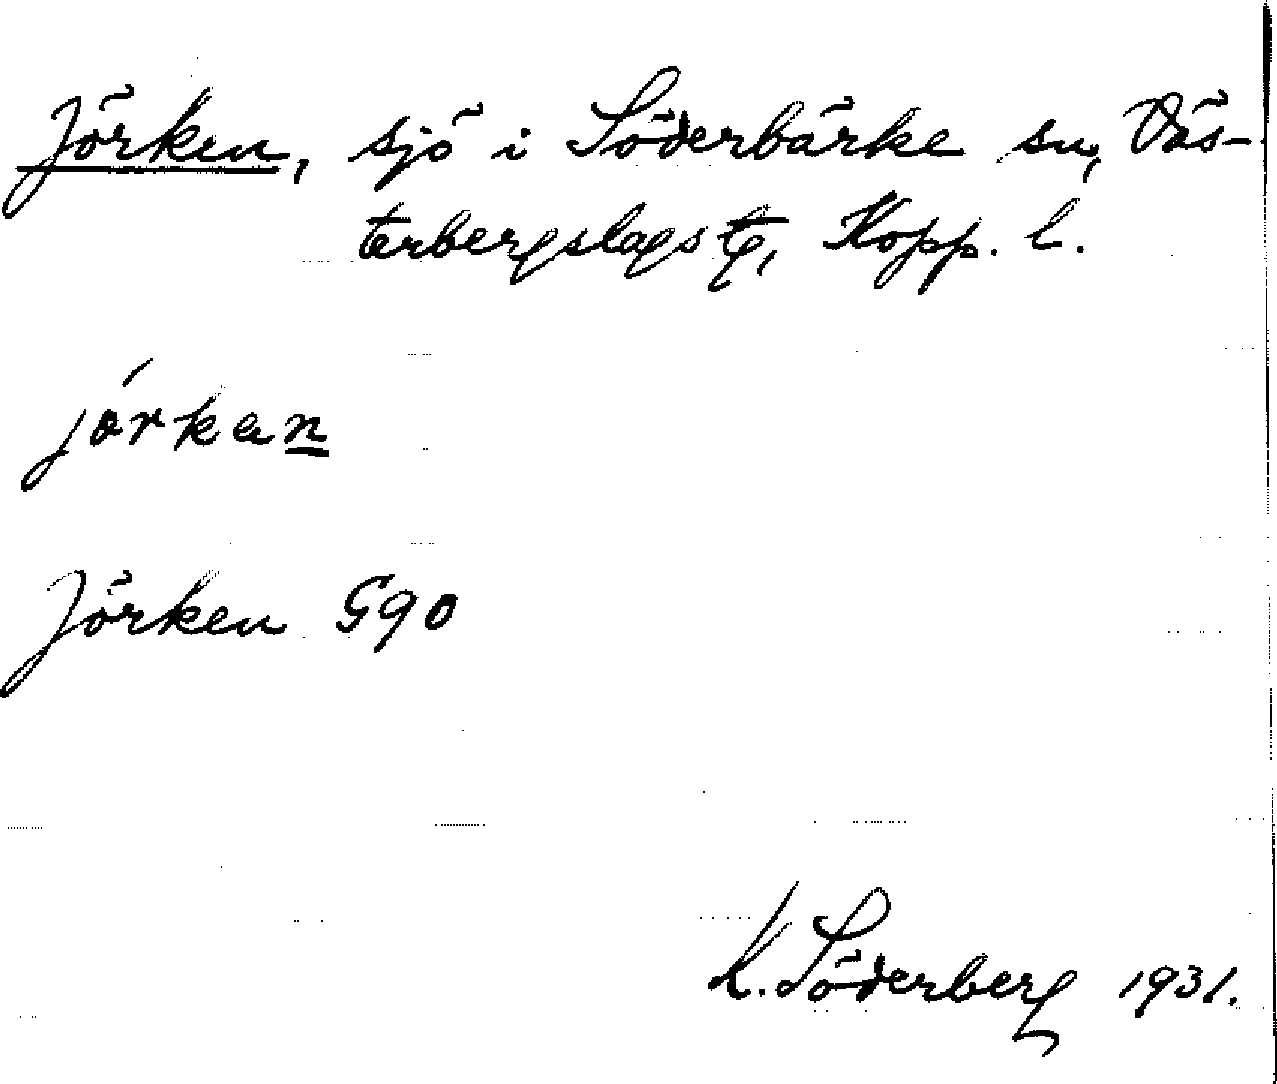 Jörken, sjö i Söderbärke sn, Väs-
terbergslags tg, Kopp. l.
jórkan
Jörken G90
K. Söderberg 1931.